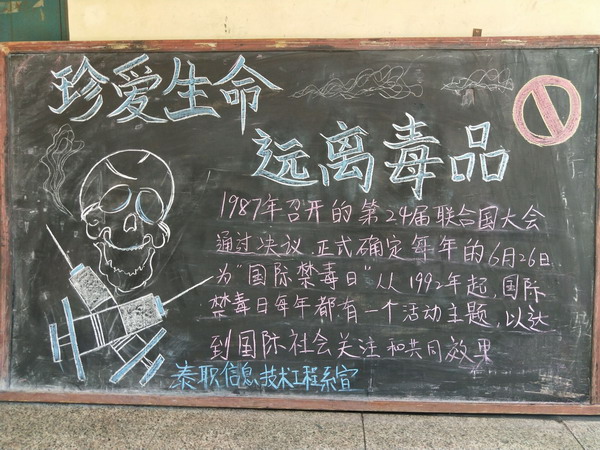 珍爱生命
远离毒品
1987年召开的第24届联合国大会
通过决议正式确定每年的6月26日
为"国际禁毒日"从1992年起,国际
禁毒日每年都有一个活动主题,以达
到国际社会关注和共同效果
泰职信息技术工程系宣